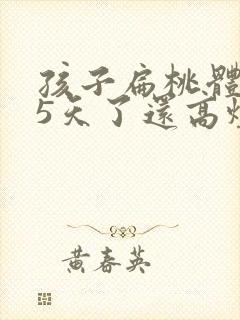 孩子扁桃體
5天了還高燒
黄春英